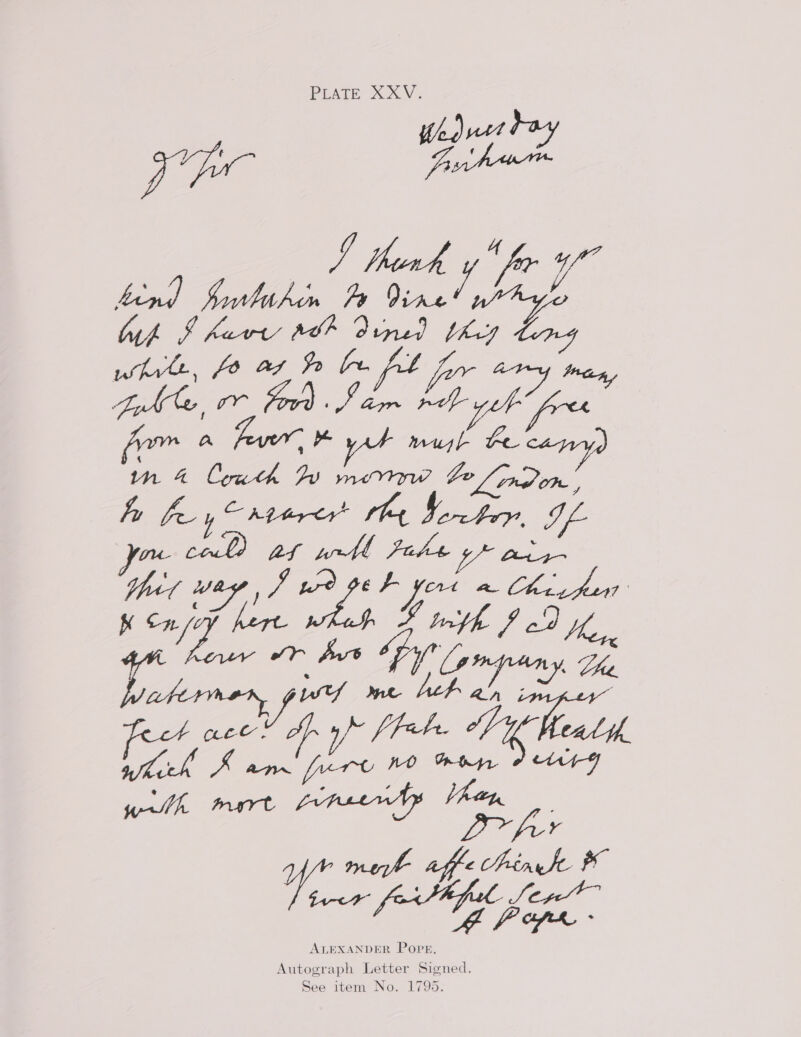 PLATE XXV.
Wednesday
Twitnam
Dr Sir
I thank yu for yr
kind Invitation to dine wth yo
but I have not dined this long
while, so as to be fit for any mans
Table, or Food. I am not yet free
from a Fever, & yet must be carryd
in a Coach to morrow to London,
to be ye nearer the Doctor. If
you could as well take yr air
this way, I wd get you a Chicken
& enjoy here what I wish I cd there
an hour or two of yr Company. The
Waterman gives me but an imper
fect acct of yr State of yr Health
which I am sure no man desires
with more sincerity than
Dr Sir
Yr most affectionate &
Ever faithful Servt
A Pope.
ALEXANDER POPE,
Autograph Letter Signed.
See item No. 1795.